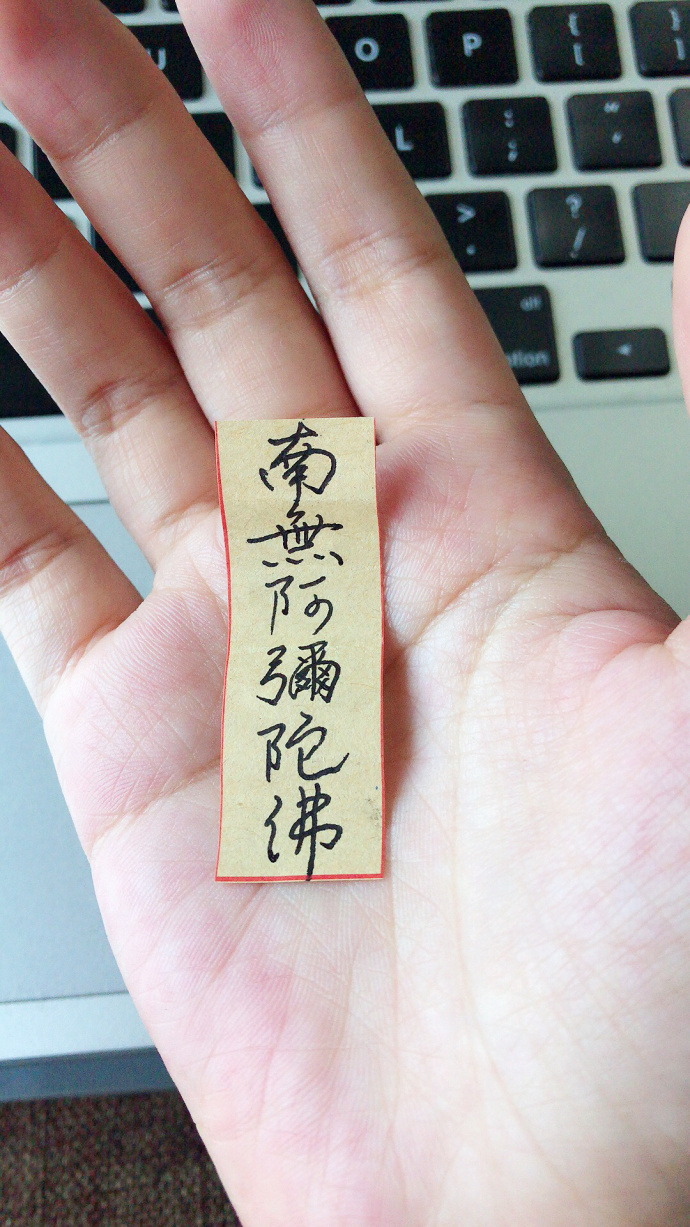 U
O
P
{
[
}
]
L
:
;
"
'
>
.
?
/
alt
option
◄
南無阿彌陀佛